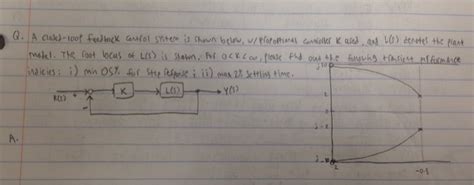 Q. A closed-loop feedback control system is shown below, w/ proportional controller K used, and L(s) denotes the plant
model. The root locus of L(s) is shown, for 0<K<∞, please find out the following transient performance
indices: i) min OS% for step response; ii) max 2% settling time.
R(s) + K L(s) Y(s)
-
-0.5
A.